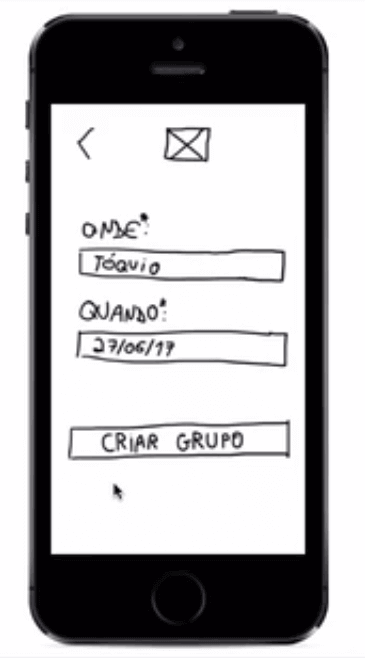 ONDE*:
TÓQUIO
QUANDO*:
27/06/17
CRIAR GRUPO